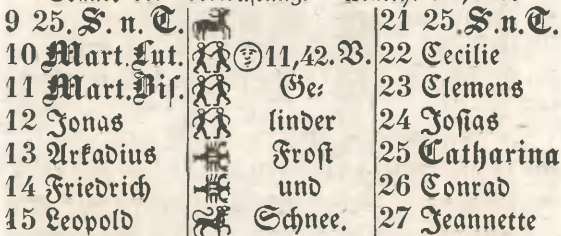 9 25. S. n. T. 21 25. S. n. T.
10 Mart. Lut. 11,42. V. 22 Cecilie
11 Mart. Bis. Ge- 23 Clemens
12 Jonas linder 24 Josias
13 Arkadius Frost 25 Catharina
14 Friedrich und 26 Conrad
15 Leopold Schnee. 27 Jeannette